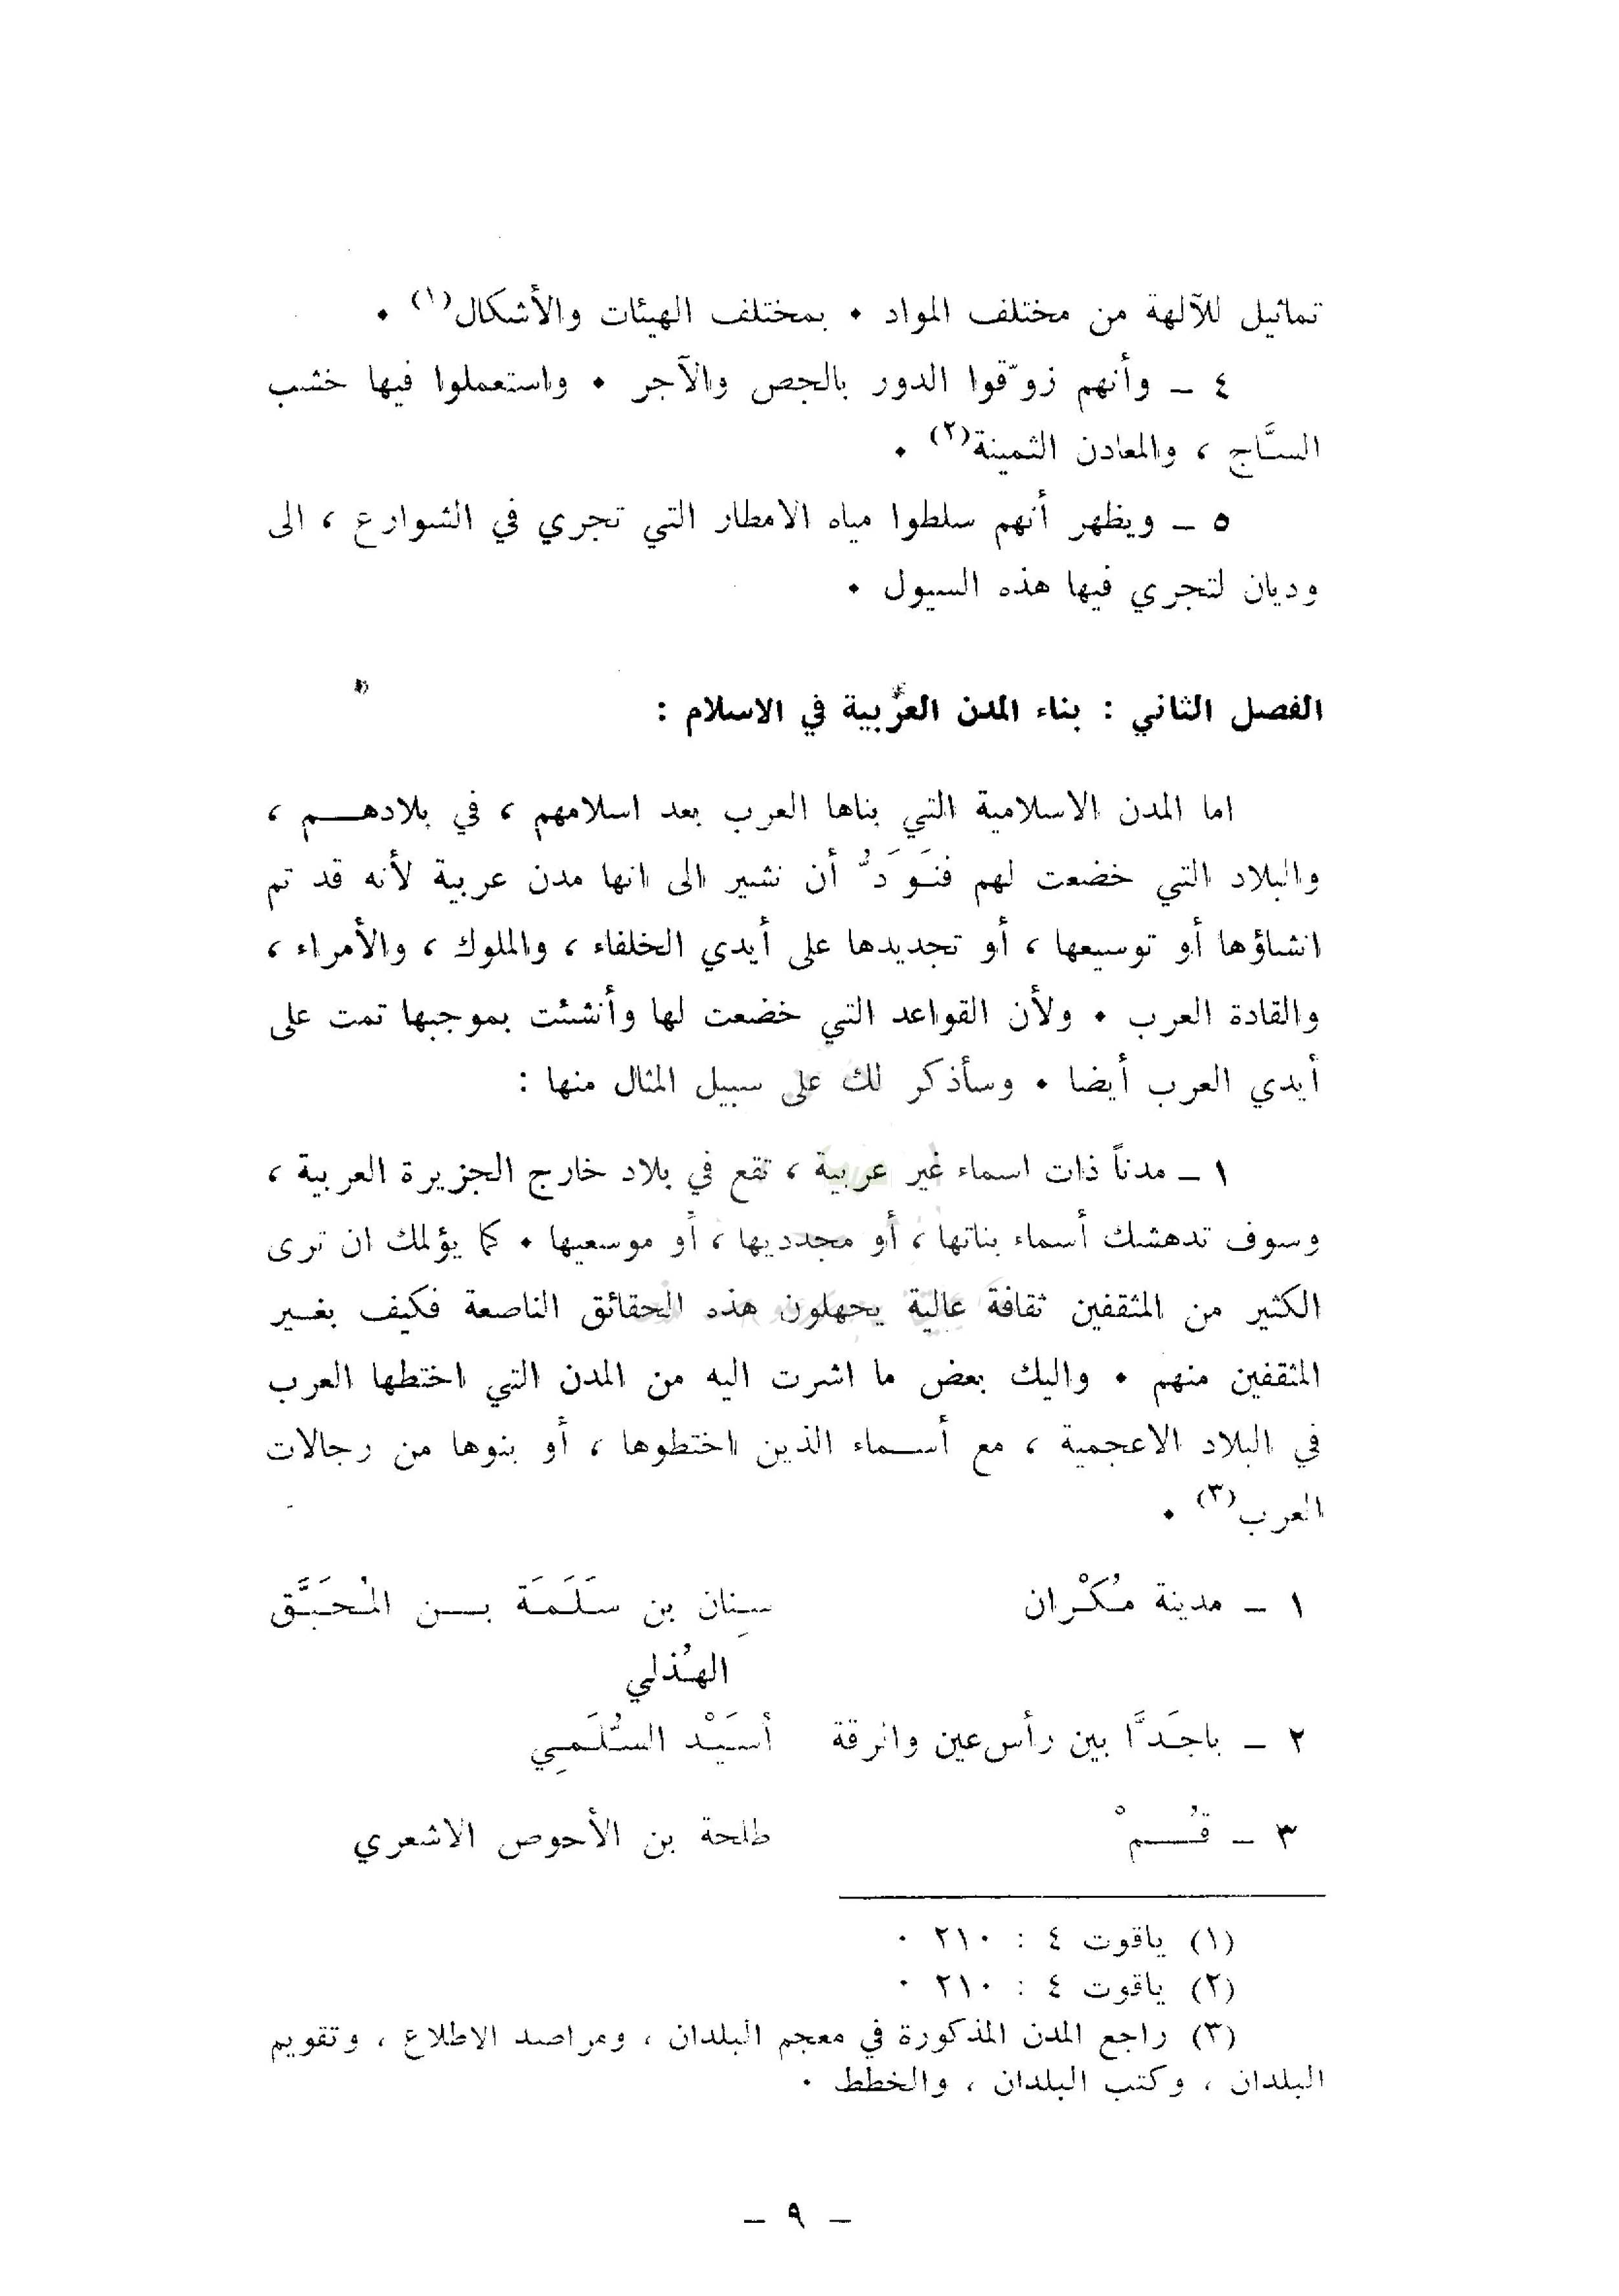 تماثيل للآلهة من مختلف المواد . بمختلف الهيئات والأشكال(١) .
٤ – وأنهم زوّقوا الدور بالجص والآجر . واستعملوا فيها خشب
السَّاج ، والمعادن الثمينة(٢) .
٥ – ويظهر أنهم سلطوا مياه الامطار التي تجري في الشوارع ، الى
وديان لتجري فيها هذه السيول .
الفصل الثاني : بناء المدن العربية في الاسلام :
اما المدن الاسلامية التي بناها العرب بعد اسلامهم ، في بلادهم ،
والبلاد التي خضعت لهم فنَوَدُّ أن نشير الى انها مدن عربية لأنه قد تم
انشاؤها أو توسيعها ، أو تجديدها على أيدي الخلفاء ، والملوك ، والأمراء ،
والقادة العرب . ولأن القواعد التي خضعت لها وأنشئت بموجبها تمت على
أيدي العرب أيضا . وسأذكر لك على سبيل المثال منها :
١ – مدناً ذات اسماء غير عربية ، تقع في بلاد خارج الجزيرة العربية ،
وسوف تدهشك أسماء بناتها ، أو مجدديها ، أو موسعيها . كما يؤلمك ان ترى
الكثير من المثقفين ثقافة عالية يجهلون هذه الحقائق الناصعة فكيف بغير
المثقفين منهم . واليك بعض ما اشرت اليه من المدن التي اختطها العرب
في البلاد الاعجمية ، مع أسماء الذين اختطوها ، أو بنوها من رجالات
العرب(٣) .
١ – مدينة مُكْران سِنان بن سَلَمَة بن المُحَبَّق
الهُذلي
٢ – باجَدَّا بين رأس عين والرقة أسَيْد السُّلَمِي
٣ – قُمْ طلحة بن الأحوص الاشعري
(١) ياقوت ٤ : ٢١٠ .
(٢) ياقوت ٤ : ٢١٠ .
(٣) راجع المدن المذكورة في معجم البلدان ، ومراصد الاطلاع ، وتقويم
البلدان ، وكتب البلدان ، والخطط .
– ٩ –